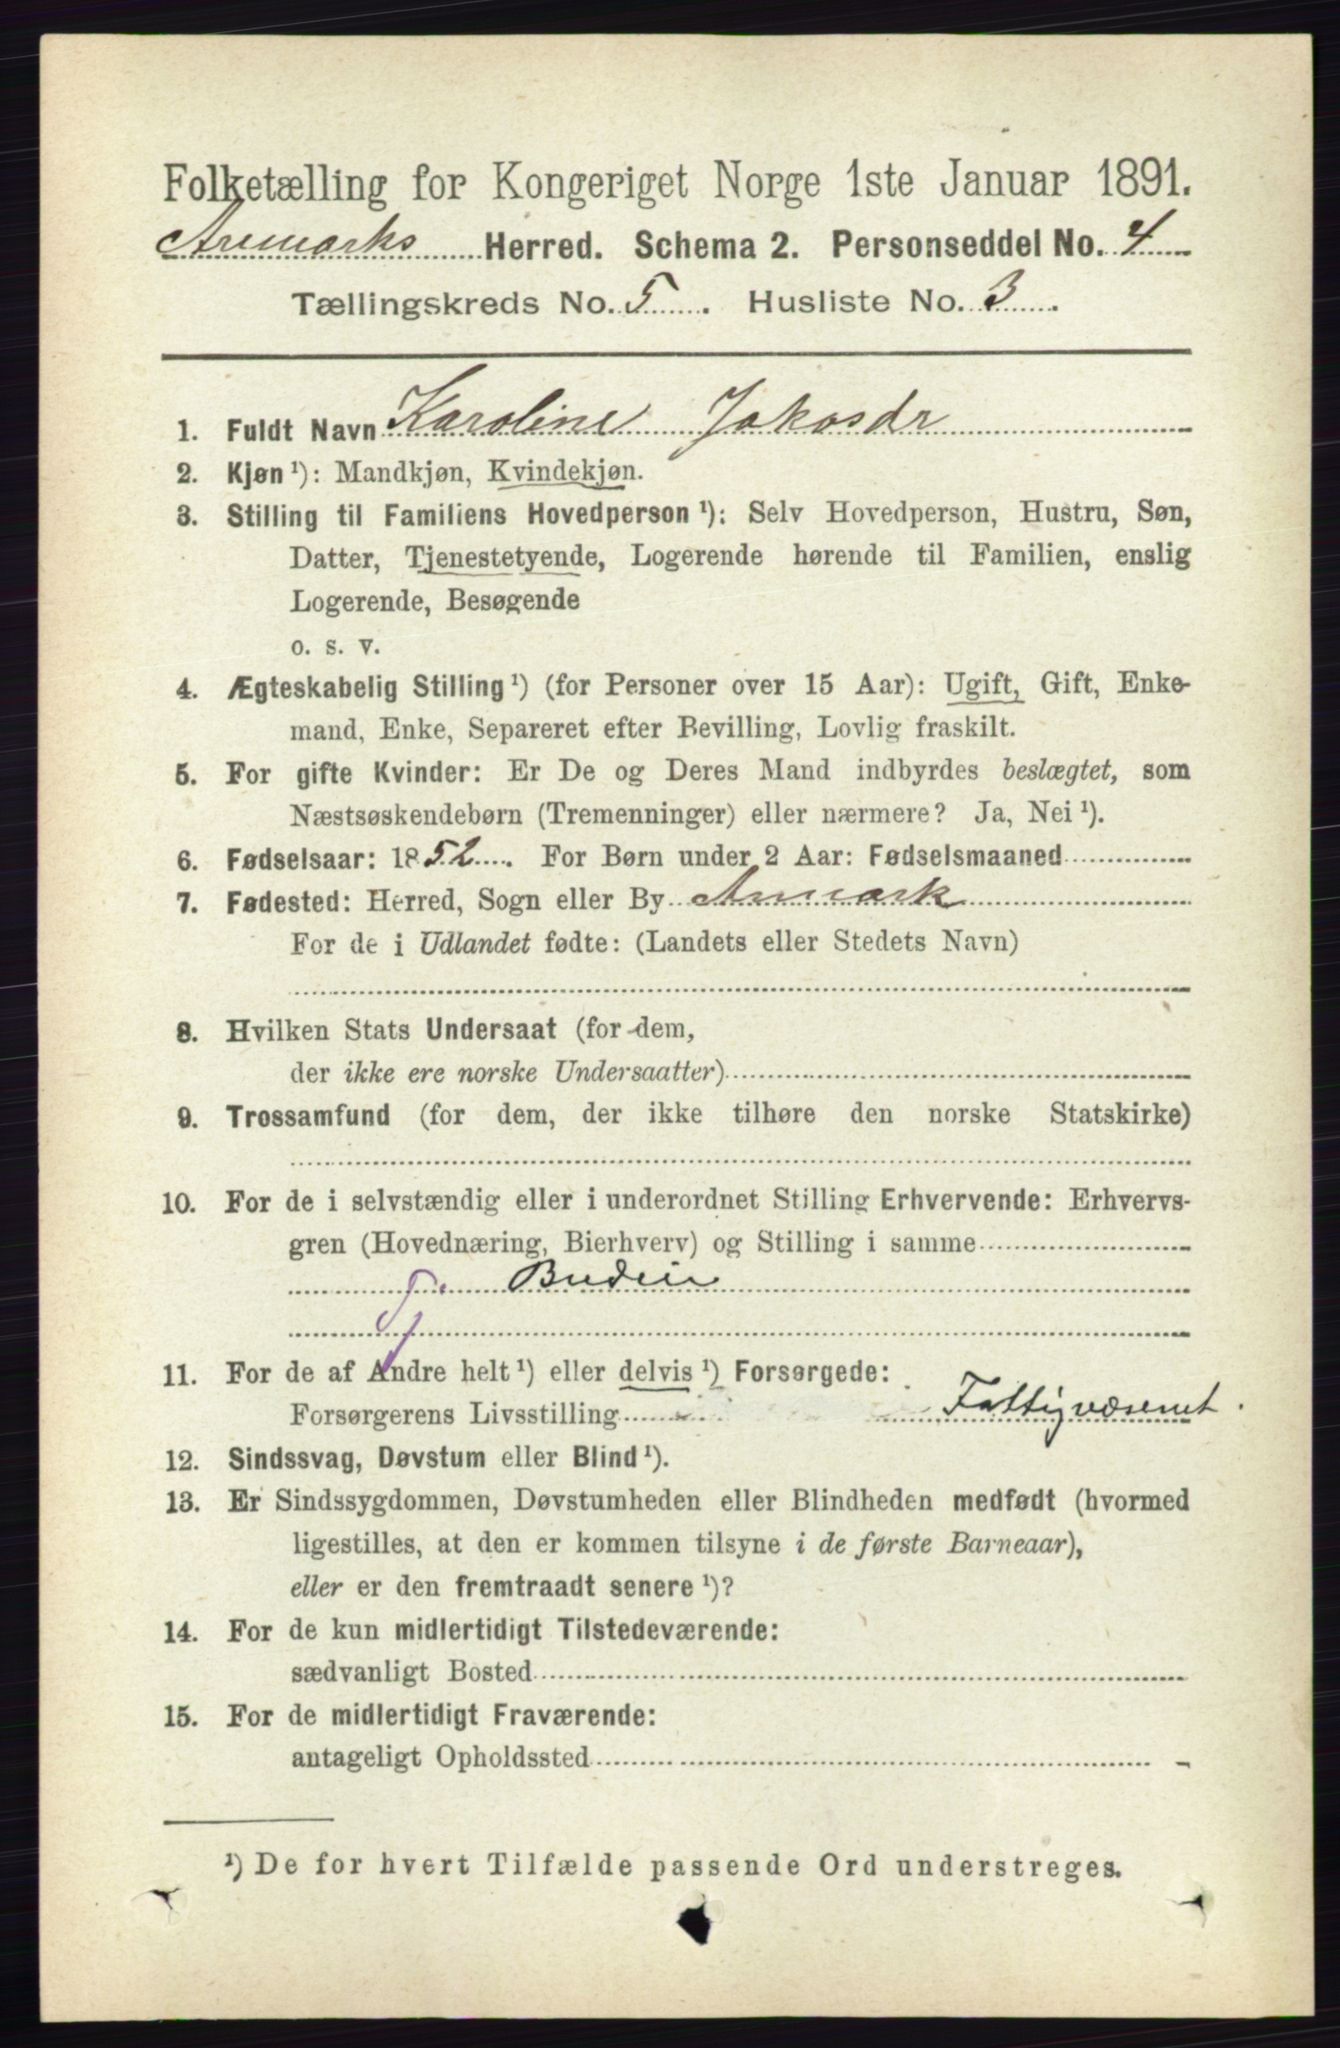 Folketælling for Kongeriget Norge 1ste Januar 1891.
Aremarks Herred. Schema 2. Personseddel No. 4
Tællingskreds No. 5. Husliste No. 3.
1. Fuldt Navn Karoline Jakosdr
2. Kjøn ¹): Mandkjøn, Kvindekjøn.
3. Stilling til Familiens Hovedperson ¹): Selv Hovedperson, Hustru, Søn,
Datter, Tjenestetyende, Logerende hørende til Familien, enslig
Logerende, Besøgende
o. s. v.
4. Ægteskabelig Stilling ¹) (for Personer over 15 Aar): Ugift, Gift, Enke-
mand, Enke, Separeret efter Bevilling, Lovlig fraskilt.
5. For gifte Kvinder: Er De og Deres Mand indbyrdes beslægtet, som
Næstsøskendebørn (Tremenninger) eller nærmere? Ja, Nei ¹).
6. Fødselsaar: 1852. For Børn under 2 Aar: Fødselsmaaned
7. Fødested: Herred, Sogn eller By Aremark
For de i Udlandet fødte: (Landets eller Stedets Navn)
8. Hvilken Stats Undersaat (for dem,
der ikke ere norske Undersaatter)
9. Trossamfund (for dem, der ikke tilhøre den norske Statskirke)
10. For de i selvstændig eller i underordnet Stilling Erhvervende: Erhvervs-
gren (Hovednæring, Bierhverv) og Stilling i samme
Budeie
11. For de af Andre helt ¹) eller delvis ¹) Forsørgede:
Forsørgerens Livsstilling Fattigvæsenet.
12. Sindssvag, Døvstum eller Blind ¹).
13. Er Sindssygdommen, Døvstumheden eller Blindheden medfødt (hvormed
ligestilles, at den er kommen tilsyne i de første Barneaar),
eller er den fremtraadt senere ¹)?
14. For de kun midlertidigt Tilstedeværende:
sædvanligt Bosted
15. For de midlertidigt Fraværende:
antageligt Opholdssted
¹) De for hvert Tilfælde passende Ord understreges.